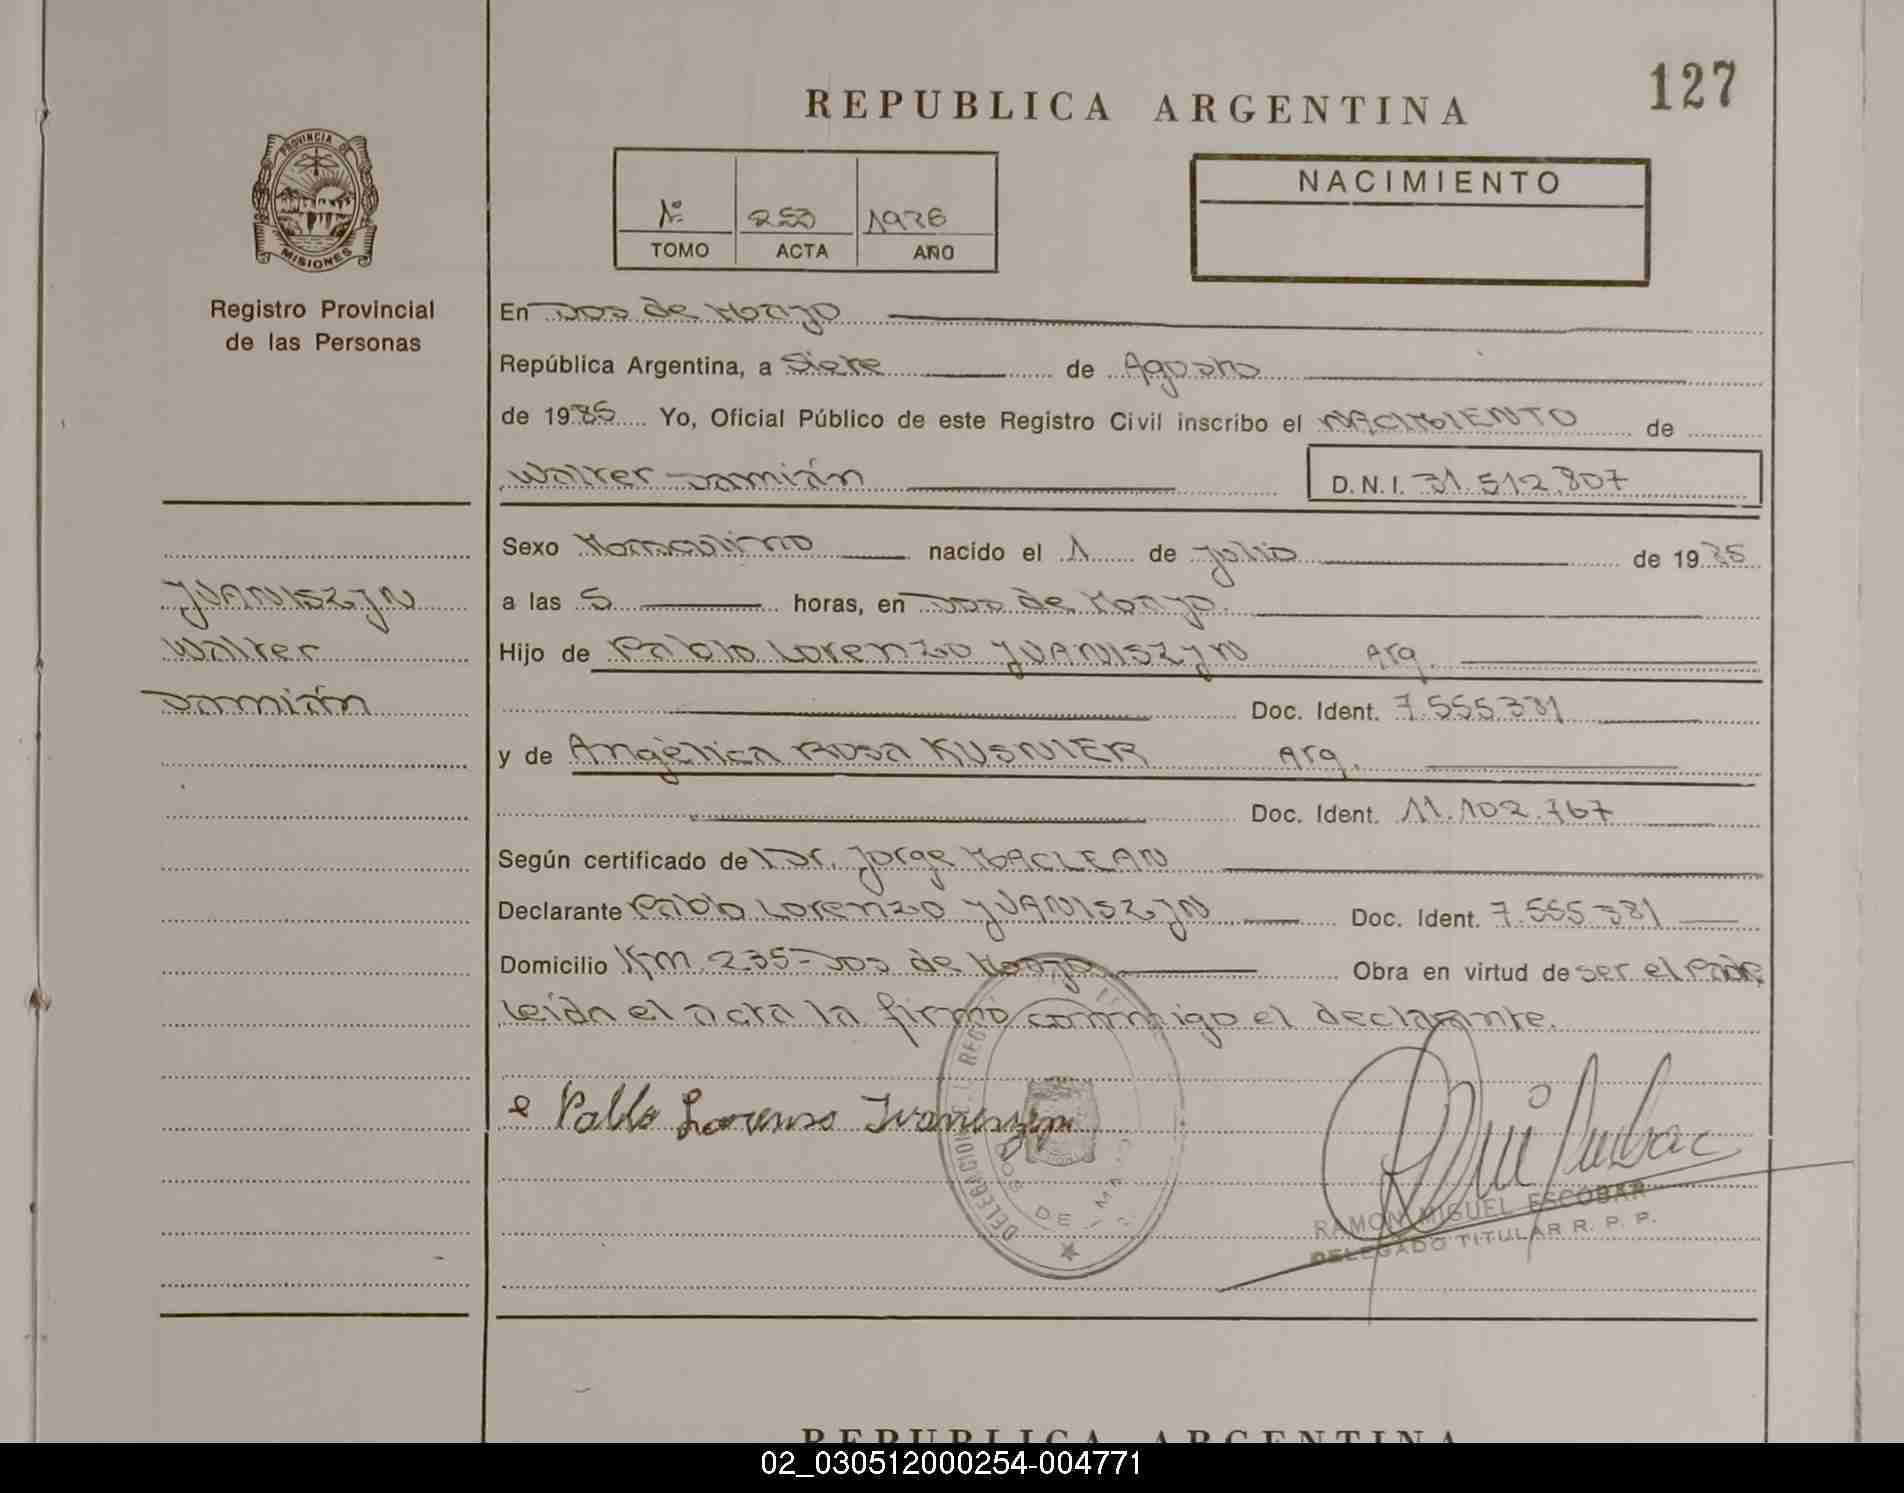 127
REPUBLICA ARGENTINA
PROVINCIA DE
MISIONES
Registro Provincial
de las Personas
Nº 253
TOMO ACTA AÑO
NACIMIENTO
En Dos de Mayo
República Argentina, a Siete de Agosto
de 1985 Yo, Oficial Público de este Registro Civil inscribo el NACIMIENTO de
Walter Damián D.N.I. 31.512.807
Sexo Masculino nacido el 1 de Julio de 1985
a las 5 horas, en Dos de Mayo.
Hijo de Pablo Lorenzo YVANISZYN Arg.
Doc. Ident. 7.555.381
y de Angélica Rosa KUSNIER Arg.
Doc. Ident. 11.102.767
Según certificado de Dr. Jorge MACLEAN
Declarante Pablo Lorenzo YVANISZYN Doc. Ident. 7.555.381
Domicilio Km 235-Dos de Mayo Obra en virtud de ser el Padre
Leída el acta la firmó conmigo el declarante.
YVANISZYN
Walter
Damián
Pablo Lorenso Ivaniszyn
DELEGACION REG
DOS DE MAYO
RAMON MIGUEL ESCOBAR
DELEGADO TITULAR R. P. P.
REPUBLICA ARGENTINA
02_030512000254-004771